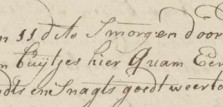 11 dito Smorgen door
buijtjes hier Quam Een
Snagts goedt weer